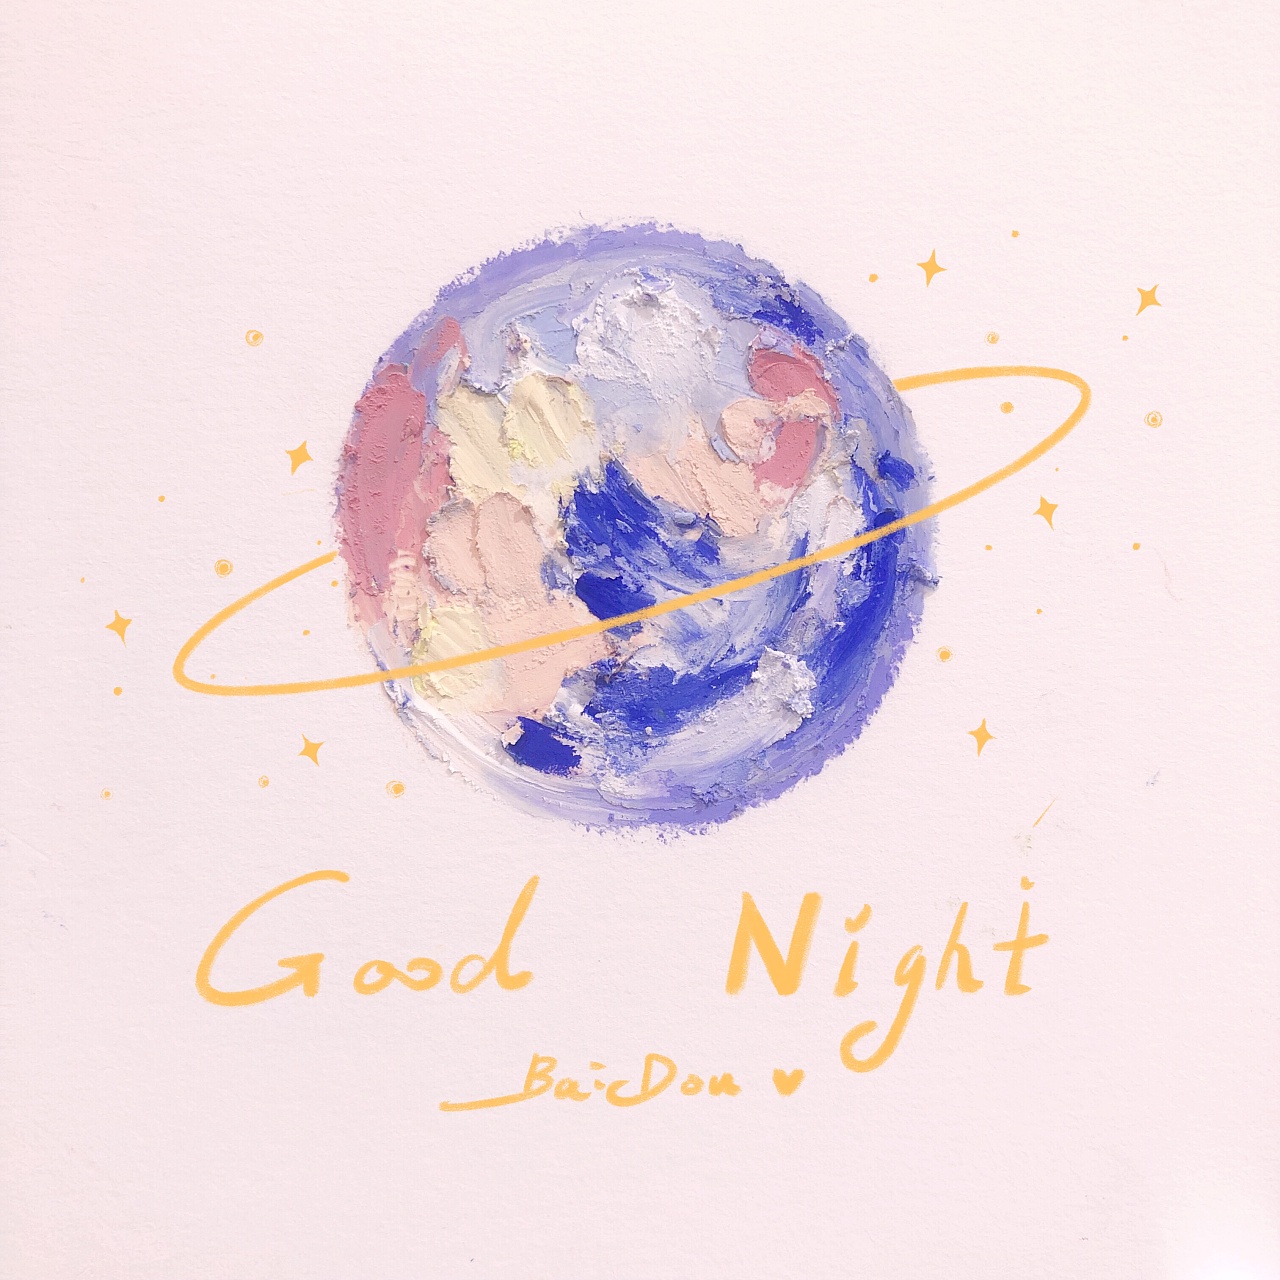 Good Night
BaicDou